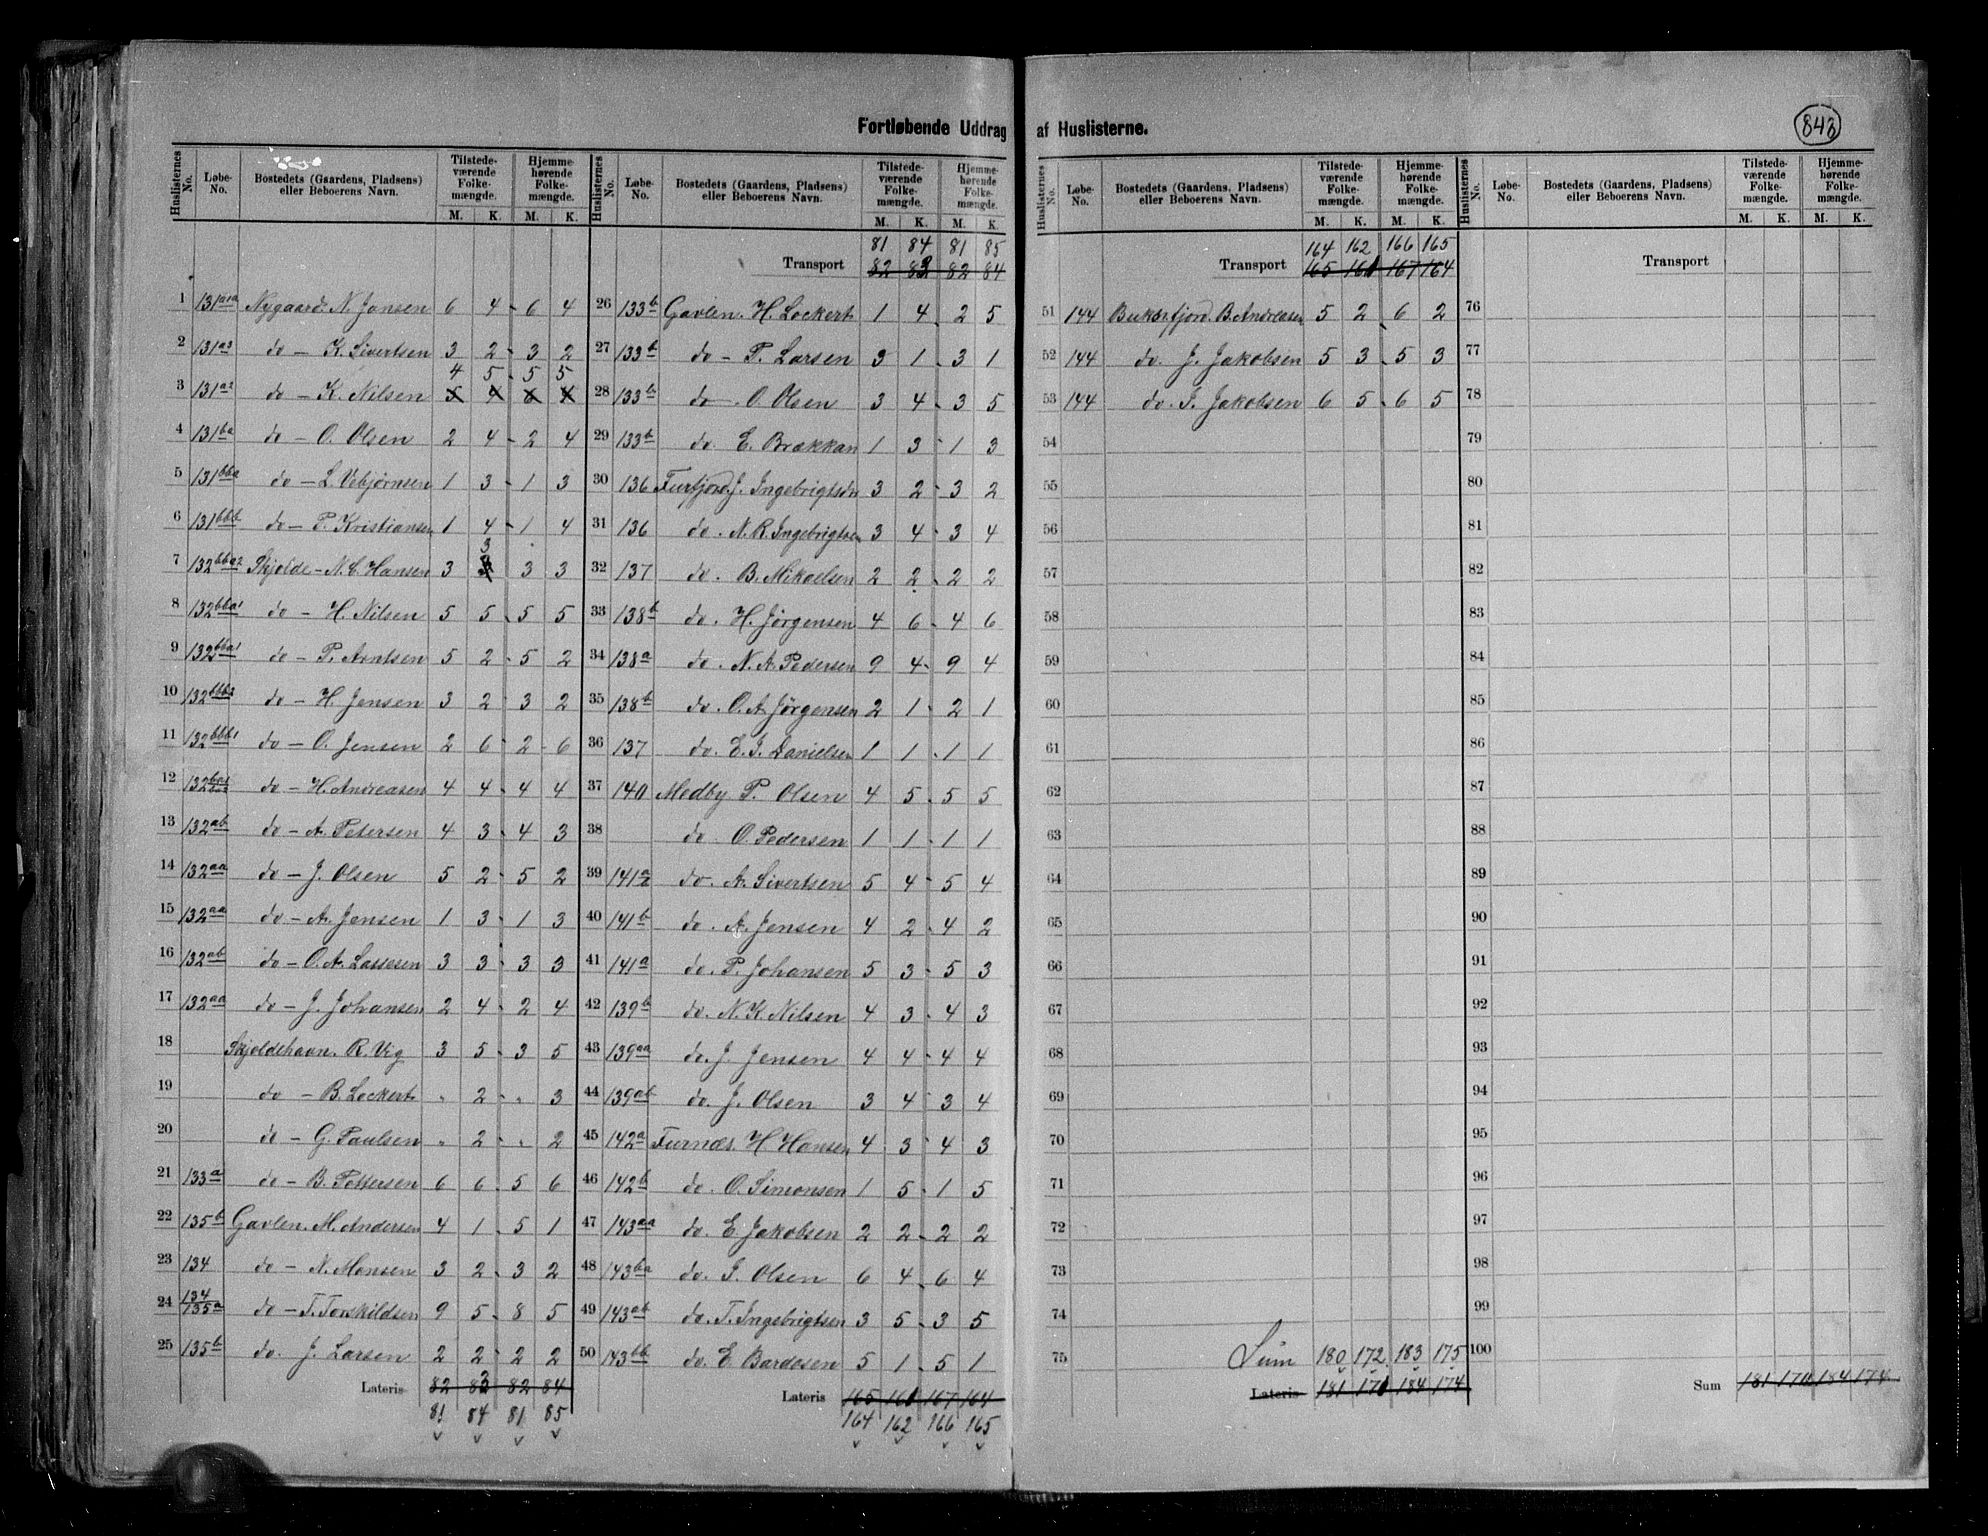 Fortløbende Uddrag af Huslisterne.
843
Huslisternes No. Løbe-No. Bostedets (Gaardens, Pladsens) eller Beboerens Navn. Tilstedeværende Folkemængde. M. K. Hjemmehørende Folkemængde. M. K.
1 131 Nygaard N. Jensen 6 4 6 4
2 131a3 do - K. Sivertsen 3 2 3 2
4 5 5 5
3 131a2 do - K. Nilsen 5 4 6 4
4 131ba do - O. Olsen 2 4 2 4
5 131bba do - L. Vebjørnsen 1 3 1 3
6 131bbb do - P. Kristiansen 1 4 1 4
3
7 132bba2 Skjolde - N. C. Hansen 3 3 3
8 132bba1 do - H. Nilsen 5 5 5 5
9 132bba1 do - P. Arntsen 5 2 5 2
10 132bbb2 do - H. Jensen 3 2 3 2
11 132bbb1 do - O. Jensen 2 6 2 6
12 132ba1 do - H. Andreasen 4 4 4 4
13 132ab do - A. Petersen 4 3 4 3
14 132aa do - J. Olsen 5 2 5 2
15 132aa do - A. Jensen 1 3 1 3
16 132ab do - O. A. Lassesen 3 3 3 3
17 132aa do - J. Johansen 2 4 2 4
18 Skjoldehavn. R. Vig 3 5 3 5
19 do - B. Lockert " 2 " 3
20 do - G. Paulsen " 2 " 2
21 133a do - B. Pettersen 6 6 5 6
22 135b Gavlen. M. Andersen 4 1 5 1
23 134 do - N. Monsen 3 2 3 2
24 134 135a do - T. Torskildsen 9 5 8 5
25 135b do. J. Larsen 2 2 2 2
Lateris 82 83 82 84
81 84 81 85
Huslisternes No. Løbe-No. Bostedets (Gaardens, Pladsens) eller Beboerens Navn. Tilstedeværende Folkemængde. M. K. Hjemmehørende Folkemængde. M. K.
81 84 81 85
Transport 82 83 82 84
26 133b Gavlen. H. Lockert 1 4 2 5
27 133b do - P. Larsen 3 1 3 1
28 133b do - O. Olsen 3 4 3 5
29 133b do. E. Brækkan 1 3 1 3
30 136 Furfjord J. Ingebrigtsen 3 2 3 2
31 136 do. N. R. Ingebrigtsen 3 4 3 4
32 137 do. B. Mikaelsen 2 2 2 2
33 138b do. H. Jørgensen 4 6 4 6
34 138a do. N. A. Pedersen 9 4 9 4
35 138b do. O. A. Jørgensen 2 1 2 1
36 137 do. E. J. Danielsen 1 1 1 1
37 140 Medby P. Olsen 4 5 5 5
38 do. O. Pedersen 1 1 1 1
39 141a do. A. Sivertsen 5 4 5 4
40 141b do. A. Jensen 4 2 4 2
41 141a do. P. Johansen 5 3 5 3
42 139b do. N. K. Nilsen 4 3 4 3
43 139aa do. J. Jensen 4 4 4 4
44 139ab do. J. Olsen 3 4 3 4
45 142a Furnæs. H. Hansen 4 3 4 3
46 142b do. O. Simonsen 1 5 1 5
47 143aa do. E. Jakobsen 2 2 2 2
48 143ba do. I. Olsen 6 4 6 4
49 143ab do. T. Ingebrigtsen 3 5 3 5
50 143bb do. E. Bardosen 5 1 5 1
Lateris 165 161 167 164
164 162 166 165
Huslisternes No. Løbe-No. Bostedets (Gaardens, Pladsens) eller Beboerens Navn. Tilstedeværende Folkemængde. M. K. Hjemmehørende Folkemængde. M. K.
164 162 166 165
Transport 165 161 167 164
51 144 Buksfjord. B. Andreasen 5 2 6 2
52 144 do. J. Jakobsen 5 3 5 3
53 144 do. I. Jakobsen 6 5 6 5
54
55
56
57
58
59
60
61
62
63
64
65
66
67
68
69
70
71
72
73
74
75 Sum 180 172 183 175
Lateris 181 171 184 174
Huslisternes No. Løbe-No. Bostedets (Gaardens, Pladsens) eller Beboerens Navn. Tilstedeværende Folkemængde. M. K. Hjemmehørende Folkemængde. M. K.
Transport
76
77
78
79
80
81
82
83
84
85
86
87
88
89
90
91
92
93
94
95
96
97
98
99
100
Sum 181 171 184 174